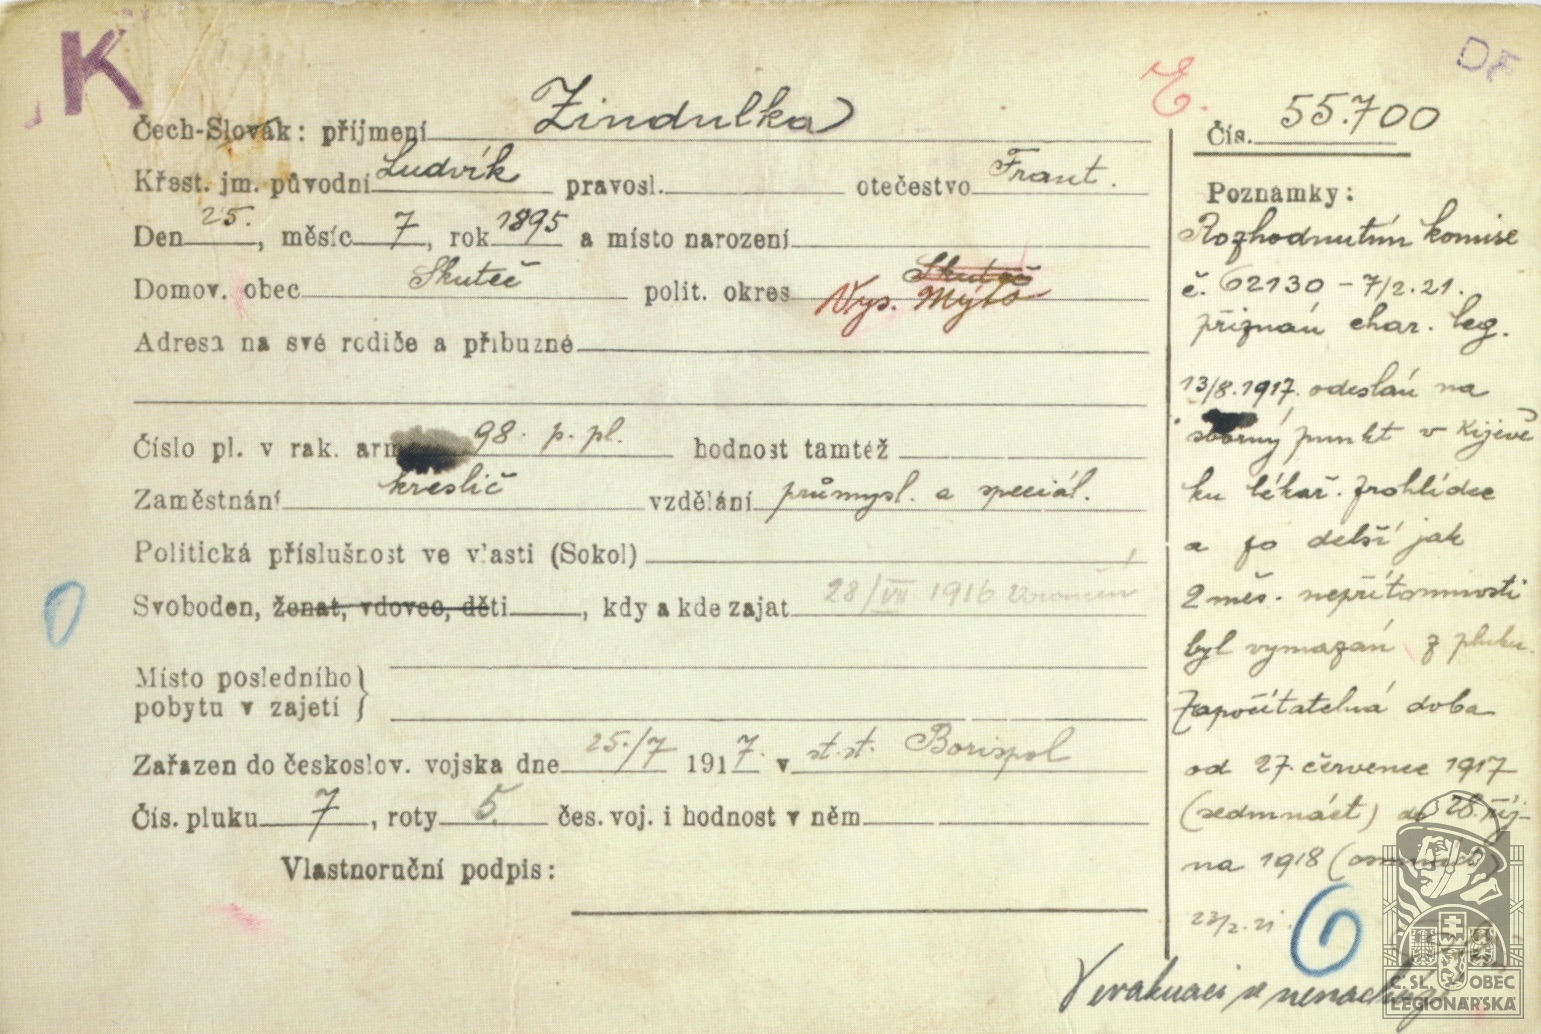 K
DF
E.
Čech-Slovák: příjmení Zindulka
Křest. jm. původní Ludvík pravosl. otečestvo Frant.
Den 25., měsíc 7, rok 1895 a místo narození
Domov. obec Skuteč polit. okres Skuteč Vys. Mýto
Adresa na své rodiče a příbuzné
Číslo pl. v rak. arm 98. p. pl. hodnost tamtéž
Zaměstnání kreslič vzdělání průmysl. a speciál.
Politická příslušnost ve vlasti (Sokol)
Svoboden, ženat, vdovec, děti, kdy a kde zajat 28/VII 1916
Místo posledního
pobytu v zajetí
Zařazen do českoslov. vojska dne 25./7 1917. v st. st. Borispol
Čís. pluku 7, roty 5. čes. voj. i hodnost v něm
Vlastnoruční podpis:
Čís. 55.700
Poznámky:
Rozhodnutím komise
č. 62130 - 7/2.21.
přiznán char. leg.
13/8.1917. odeslán na
sborný punkt v Kijevě
ku lékař. prohlídce
a po delší jak
2 měs. nepřítomnosti
byl vymazán z pluku.
Započítatelná doba
od 27. července 1917
(sedmnáct) do 28. říj-
na 1918 (osmnáct)
23/2.21.
6
V evakuaci se nenachází
0
Č. SL. OBEC
LEGIONÁŘSKÁ